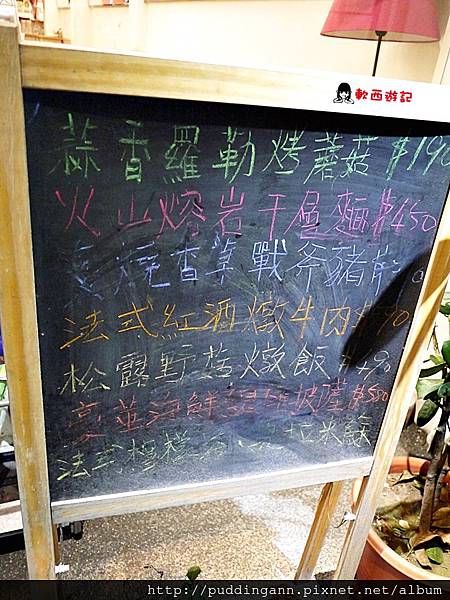 軟西遊記
蒜香羅勒烤蘑菇 $190
火山熔岩千層麵 $450
燒香草戰斧豬
法式紅酒燉牛肉 90
松露野菇燉飯 $490
海鮮 披薩 $500
法式 拉米蘇
http://puddingann.pixnet.net/album